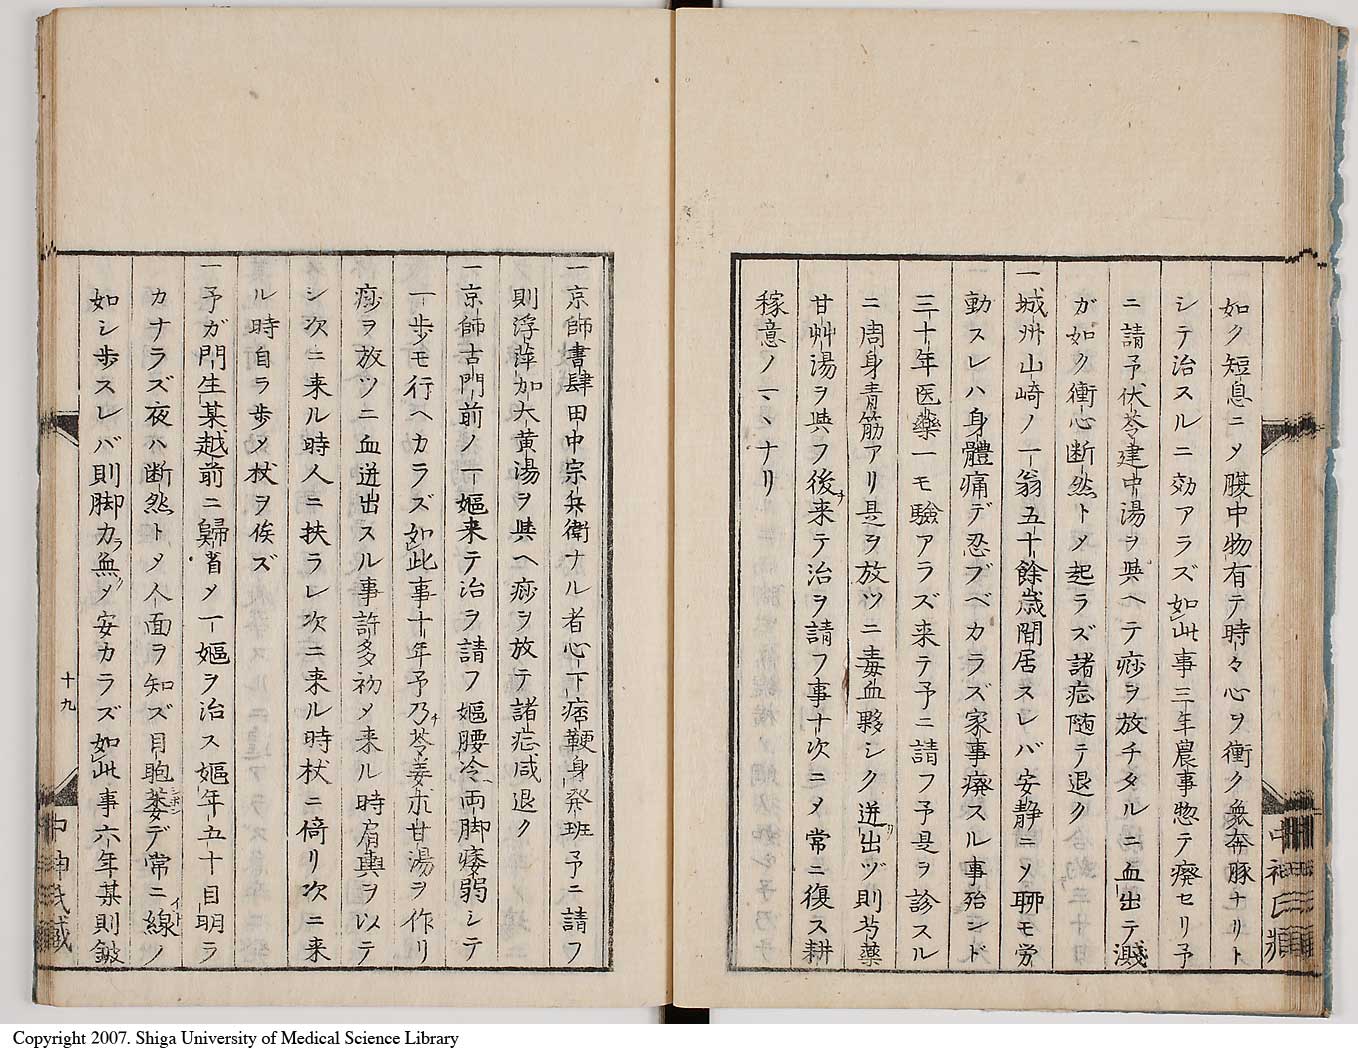 如ク短息ニメ腹中物有テ時々心ヲ衝ク衆奔豚ナリト
シテ治スルニ効アラズ如此事三年農事惣テ癈セリ予
ニ請予伏苓建中湯ヲ與ヘテ痧ヲ放チタルニ血出テ濺
ガ如ク衝心断然トメ起ラズ諸症随テ退ク
一城州山崎ノ一翁五十餘歳間居スレバ安静ニメ聊モ労
動スレハ身體痛デ忍ブベカラズ家事癈スル事殆ンド
三十年医藥一モ驗アラズ来テ予ニ請フ予是ヲ診スル
ニ周身青筋アリ是ヲ放ツニ毒血夥シク迸リ出ヅ則芍藥
甘艸湯ヲ與フ後チ来テ治ヲ請フ事十次ニメ常ニ復ス耕
稼意ノマヽナリ
中神氏蔵
一京師書肆田中宗兵衛ナル者心下痞鞕身発班予ニ請フ
則浮萍加大黄湯ヲ與ヘ痧ヲ放テ諸症咸退ク
一京師古門前ノ一嫗来テ治ヲ請フ嫗腰冷両脚痿弱シテ
一歩モ行ヘカラズ如此事十年予乃チ苓姜朮甘湯ヲ作リ
痧ヲ放ツニ血迸出スル事許多初メ来ル時肩輿ヲ以テ
シ次ニ来ル時人ニ扶ラレ次ニ来ル時杖ニ倚リ次ニ来
ル時自ラ歩メ杖ヲ俟ズ
一予ガ門生某越前ニ歸省メ一嫗ヲ治ス嫗年五十目明ラ
カナラズ夜ハ断然トメ人面ヲ知ズ目胞萎デ常ニ線イトノ
如シ歩スレバ則脚力ラ無メ安カラズ如此事六年某則鈹
十九
中神氏蔵
Copyright 2007. Shiga University of Medical Science Library